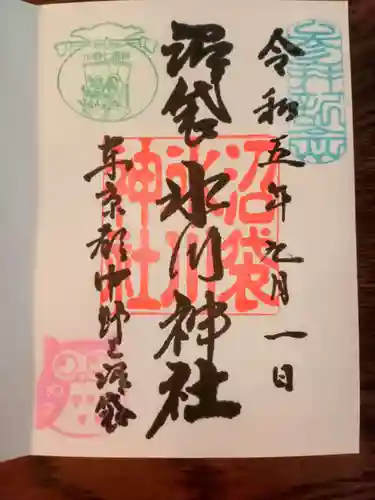 参拝記念
令和五年元月一日
沼袋氷川神社
沼袋
氷川
神社
東京都中野区沼袋